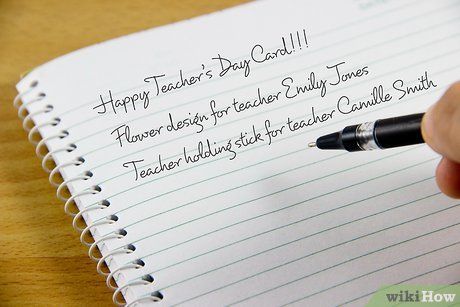 Happy Teacher's Day Card!!!
Flower design for teacher Emily Jones
Teacher holding stick for teacher Camille Smith
wikiHow